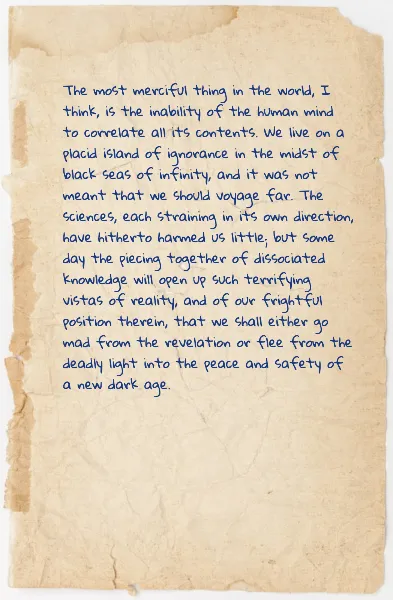 The most merciful thing in the world, I
think, is the inability of the human mind
to correlate all its contents. We live on a
placid island of ignorance in the midst of
black seas of infinity, and it was not
meant that we should voyage far. The
sciences, each straining in its own direction,
have hitherto harmed us little; but some
day the piecing together of dissociated
knowledge will open up such terrifying
vistas of reality, and of our frightful
position therein, that we shall either go
mad from the revelation or flee from the
deadly light into the peace and safety of
a new dark age.